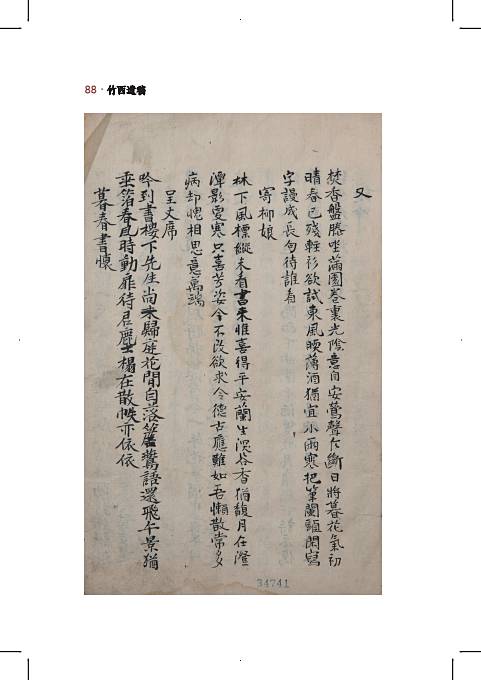 88 · 竹西遺稿
又
焚香盤膝坐蒲團卷裏光陰意自安鶯聲乍斷日將暮花氣初
晴春已殘輕衫欲試東風暖薄酒猶宜小雨寒把筆闌頭閑寫
字謾成長句待誰看
寄柳娘
林下風標縱未看書來惟喜得平安蘭生深谷香猶馥月在澄
潭影更寒只喜芳姿今不改欲求令德古應難如吾懶散常多
病却愧相思意萬端
呈丈席
吟到書樓下先生尚未歸庭花閒自落簷鶯語還飛午景猶
垂箔春風時動扉待君塵榻在散帙亦依依
暮春書懷
34741